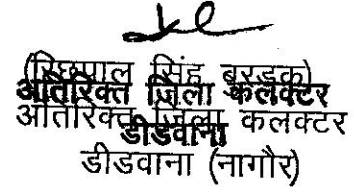 (रिछपाल सिंह बुरड़क)
अतिरिक्त जिला कलक्टर
अतिरिक्त जिला कलक्टर
डीडवाना
डीडवाना (नागौर)